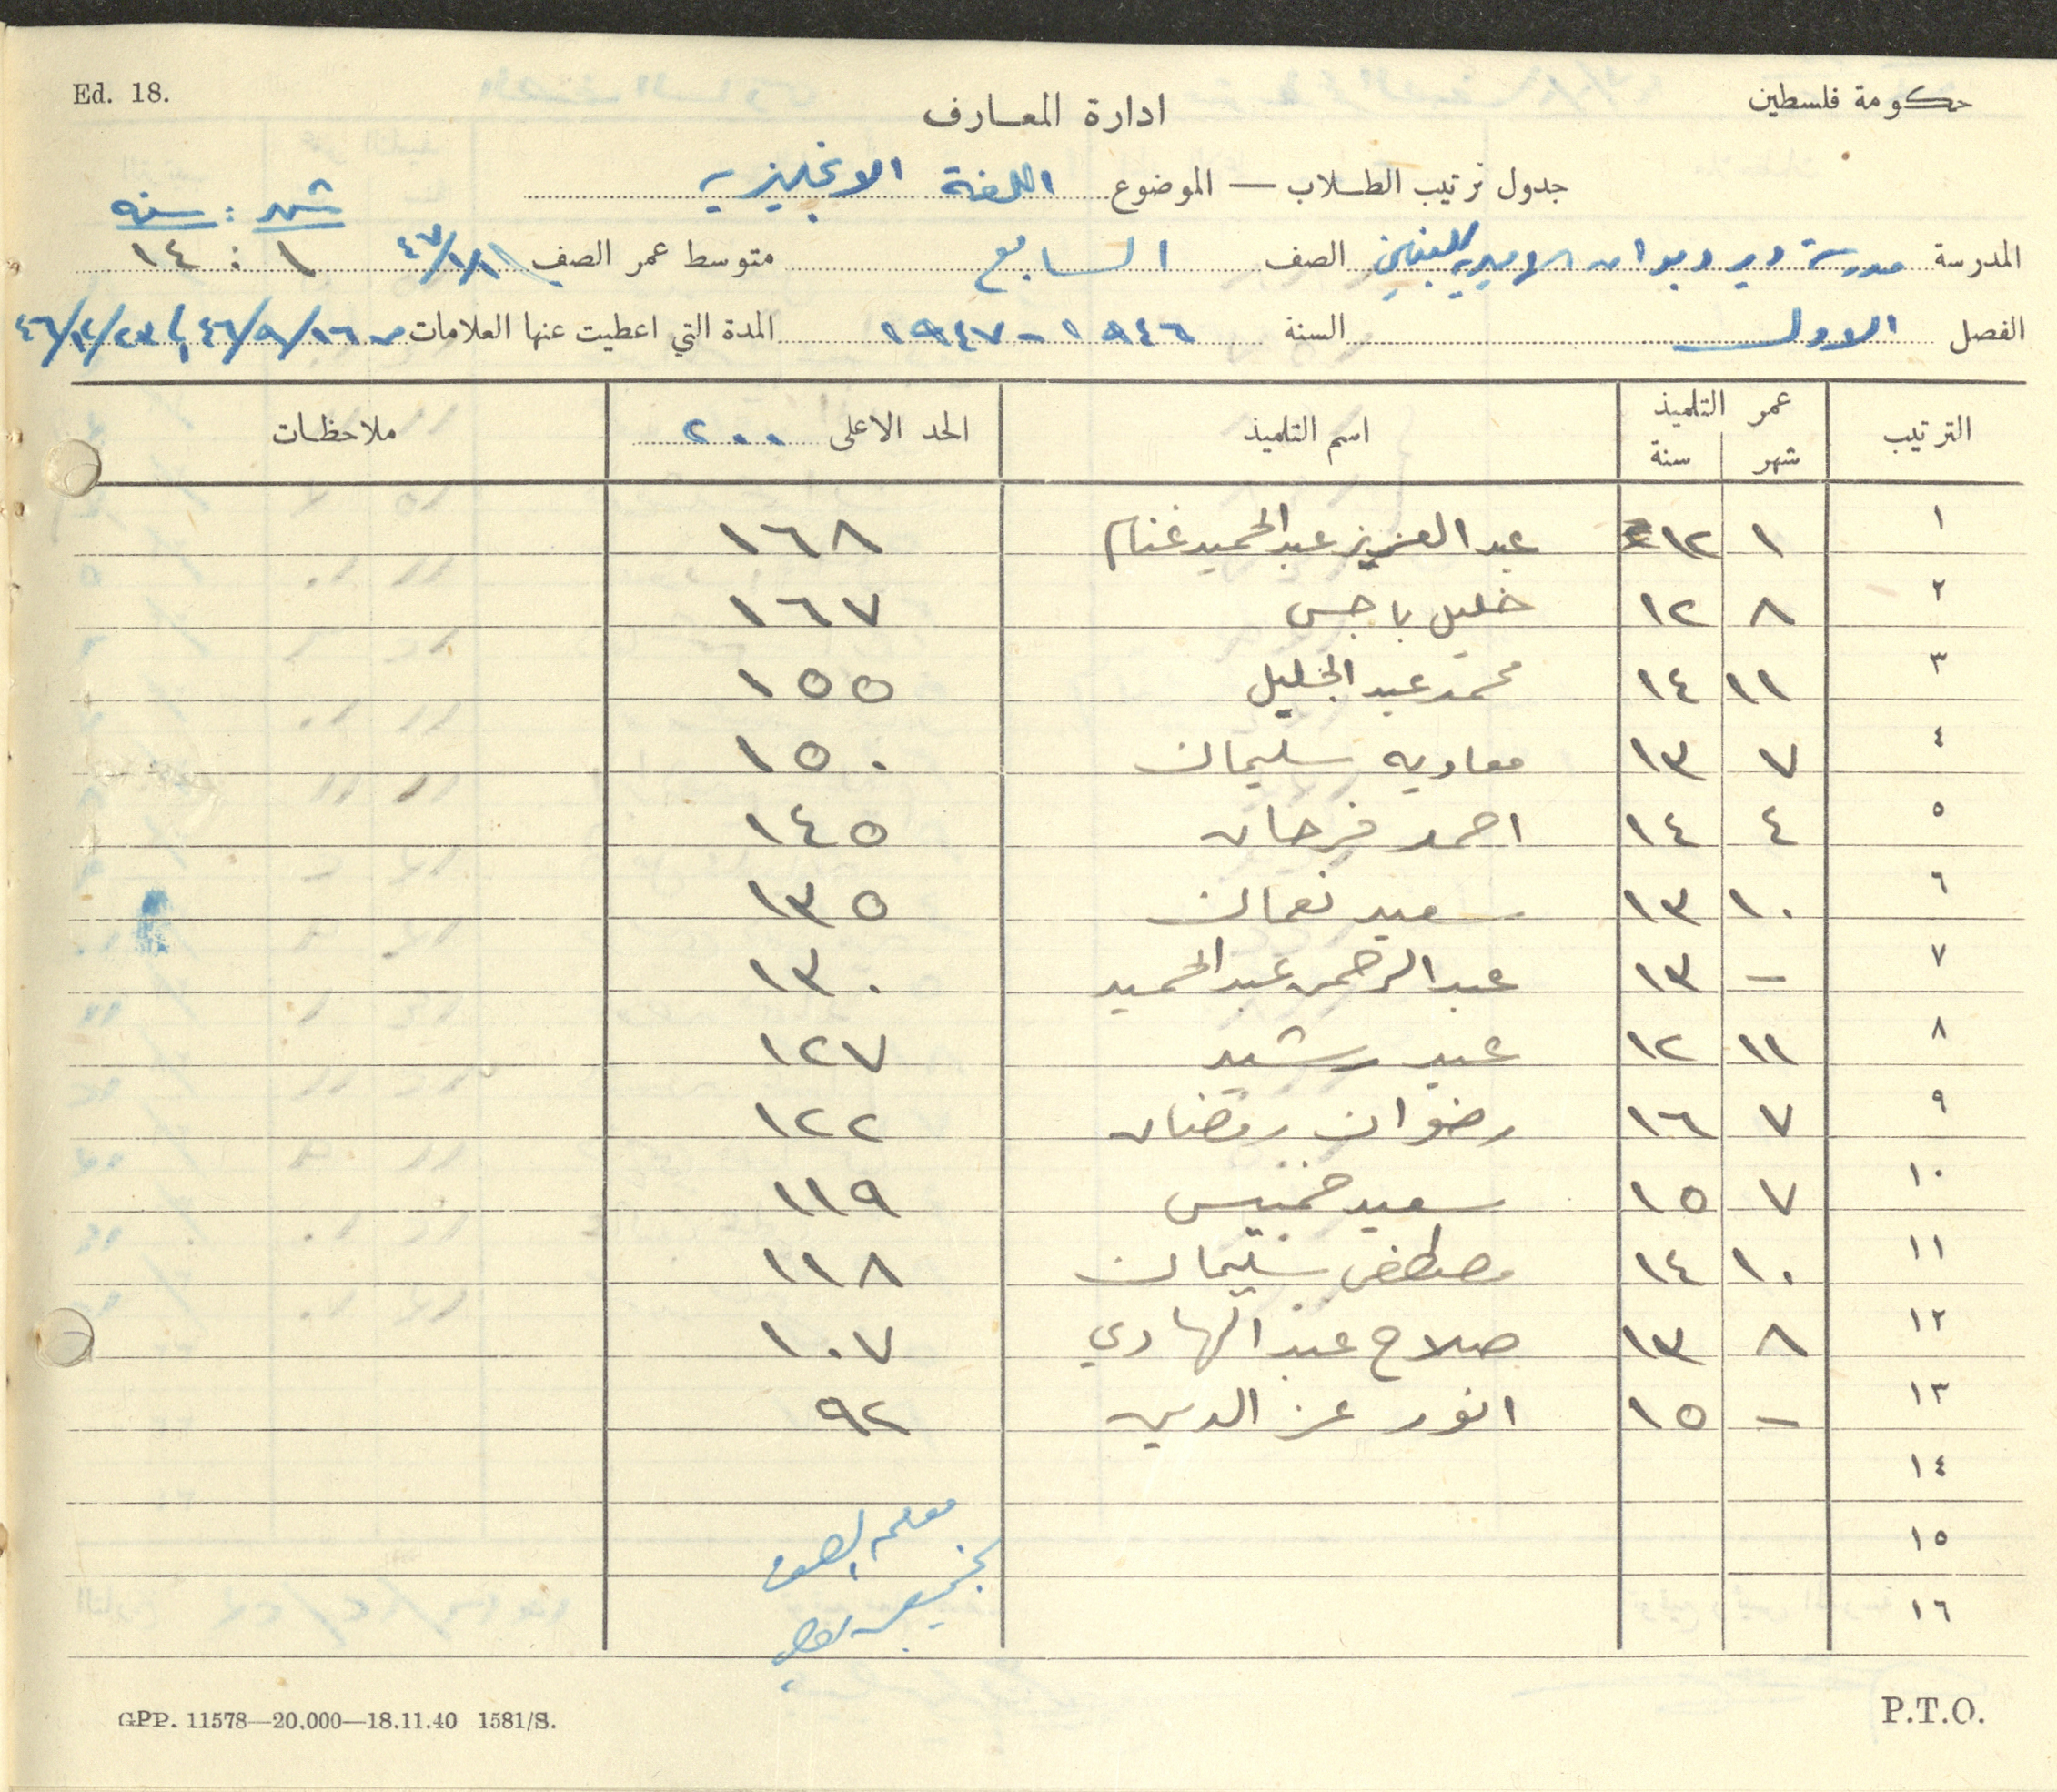 Ed. 18.
حكومة فلسطين
ادارة المعارف
جدول ترتيب الطلاب — الموضوع اللغة الانجليزيه
شهر : سنه
المدرسة مدرسة دير دبوان الاميرية للبنين الصف السابع متوسط عمر الصف ٤٧/١/١ ١ : ١٤
الفصل الاول السنة ١٩٤٦ - ١٩٤٧ المدة التي اعطيت عنها العلامات من ٤٦/٩/١٦ الى ٤٦/١٢/٢٣
الترتيب عمر التلميذ شهر سنة اسم التلميذ الحد الاعلى ٢٠٠ ملاحظات
١ ١ ١٢ عبد العزيز عبد الحميد غنام ١٦٨
٢ ٨ ١٢ خليل باجس ١٦٧
٣ ١١ ١٤ محمد عبد الجليل ١٥٥
٤ ٧ ١٣ معاويه سليمان ١٥٠
٥ ٤ ١٤ احمد فرحان ١٤٥
٦ ١٠ ١٣ سعيد نعمان ١٣٥
٧ - ١٣ عبد الرحمن عبد الحميد ١٣٠
٨ ١١ ١٢ عبد رشيد ١٢٧
٩ ٧ ١٦ رضوان رمضان ١٢٢
١٠ ٧ ١٥ سعيد خميس ١١٩
١١ ١٠ ١٤ مصطفى سليمان ١١٨
١٢ ٨ ١٣ صلاح عبد الهادي ١٠٧
١٣ - ١٥ انور عز الدين ٩٢
١٤
١٥
معلم الصف
١٦
GPP. 11578—20,000—18.11.40 1581/S.
P.T.O.